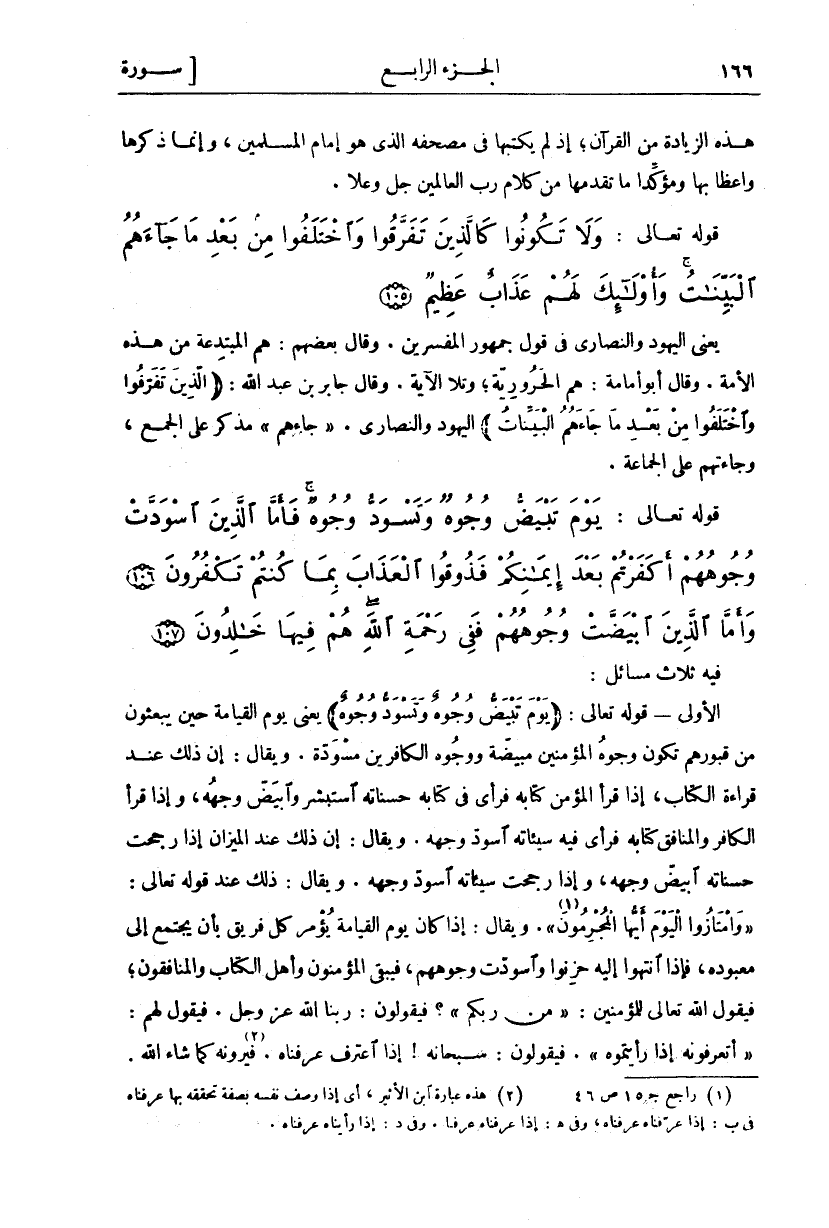 ١٦٦ الجزء الرابع [ سورة
هذه الزيادة من القرآن؛ إذ لم يكتبها فى مصحفه الذى هو إمام المسلمين ، وإنما ذكرها
واعظا بها ومؤكّدا ما تقدمها من كلام رب العالمين جل وعلا .
قوله تعالى : وَلَا تَكُونُوا كَالَّذِينَ تَفَرَّقُوا وَٱخْتَلَفُوا مِنۢ بَعْدِ مَا جَآءَهُمُ
ٱلْبَيِّنَـٰتُ ۚ وَأُولَـٰٓئِكَ لَهُمْ عَذَابٌ عَظِيمٌ ۝١٠٥
يعنى اليهود والنصارى فى قول جمهور المفسرين . وقال بعضهم : هم المبتدعة من هذه
الأمة . وقال أبو أمامة : هم الحَرُورِيّة؛ وتلا الآية . وقال جابر بن عبد الله : ﴿ الَّذِينَ تَفَرَّقُوا
وَٱخْتَلَفُوا مِنْ بَعْدِ مَا جَاءَهُمُ الْبَيِّنَاتُ ﴾ اليهود والنصارى . « جاءهم » مذكر على الجمع ،
وجاءتهم على الجماعة .
قوله تعالى : يَوْمَ تَبْيَضُّ وُجُوهٌ وَتَسْوَدُّ وُجُوهٌ ۚ فَأَمَّا ٱلَّذِينَ ٱسْوَدَّتْ
وُجُوهُهُمْ أَكَفَرْتُم بَعْدَ إِيمَـٰنِكُمْ فَذُوقُوا ٱلْعَذَابَ بِمَا كُنتُمْ تَكْفُرُونَ ۝١٠٦
وَأَمَّا ٱلَّذِينَ ٱبْيَضَّتْ وُجُوهُهُمْ فَفِى رَحْمَةِ ٱللَّهِ ۖ هُمْ فِيهَا خَـٰلِدُونَ ۝١٠٧
فيه ثلاث مسائل :
الأولى — قوله تعالى : ﴿يَوْمَ تَبْيَضُّ وُجُوهٌ وَتَسْوَدُّ وُجُوهٌ﴾ يعنى يوم القيامة حين يبعثون
من قبورهم تكون وجوهُ المؤمنين مبيضّة ووجُوه الكافرين مسْوَدّة . ويقال : إن ذلك عند
قراءة الكتاب ، إذا قرأ المؤمن كتابه فرأى فى كتابه حسناته ٱستبشر وٱبيَضّ وجهُه ، وإذا قرأ
الكافر والمنافق كتابه فرأى فيه سيئاته ٱسودّ وجهه . ويقال : إن ذلك عند الميزان إذا رجحت
حسناته ٱبيضّ وجهه ، وإذا رجحت سيئاته ٱسودّ وجهه . ويقال : ذلك عند قوله تعالى :
« وَٱمْتَازُوا الْيَوْمَ أَيُّهَا الْمُجْرِمُونَ »(١). ويقال : إذا كان يوم القيامة يُؤْمر كل فريق بأن يجتمع إلى
معبوده ، فإذا ٱنتهوا إليه حزِنوا وٱسودّت وجوههم ، فيبقى المؤمنون وأهل الكتاب والمنافقون؛
فيقول الله تعالى للمؤمنين : « من ربكم » ؟ فيقولون : ربنا الله عز وجل . فيقول لهم :
« أتعرفونه إذا رأيتموه » . فيقولون : سبحانه ! إذا ٱعترف عرفناه .(٢) فيرونه كما شاء الله .
(١) راجع جـ ١٥ ص ٤٦ (٢) هذه عبارة ٱبن الأثير ، أى إذا وصف نفسه بصفة تحققه بها عرفناه
فى ب : إذا عرّفناه عرفناه، وفى ه : إذا عرفناه عرفنا . وفى د : إذا رأيناه عرفناه .